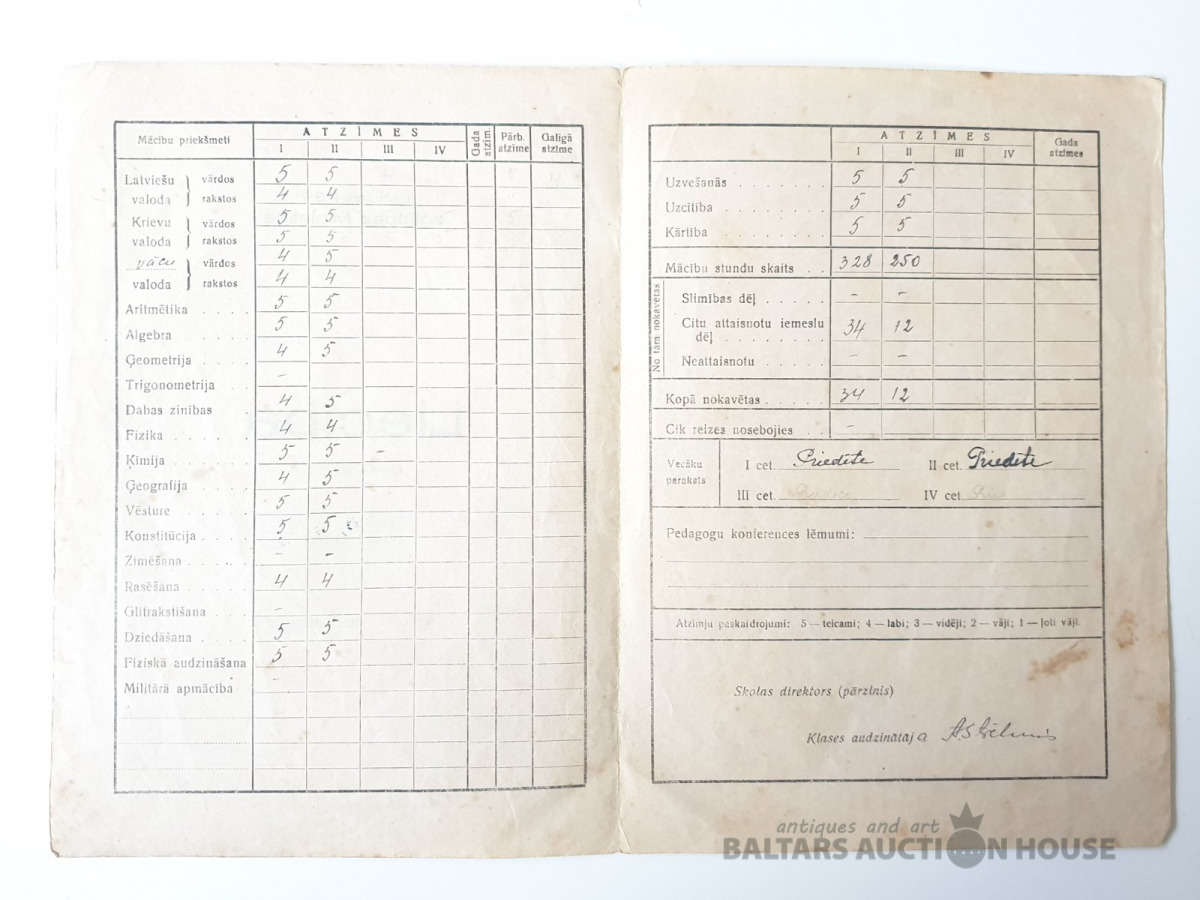 Mācību priekšmeti ATZĪMES Gada atzīm. Pārb. atzīme Galīgā atzīme
I II III IV
Latviešu valoda } vārdos 5 5
rakstos 4 4
Krievu valoda } vārdos 5 5
rakstos 5 5
vācu valoda } vārdos 4 5
rakstos 4 4
Aritmētika . . . . 5 5
Algebra . . . . 5 5
Ģeometrija . . 4 5
Trigonometrija . . -
Dabas zinības . 4 5
Fizika . . . . . 4 4
Ķīmija . . . . 5 5 -
Ģeografija . . . 4 5
Vēsture . . . . 5 5
Konstitūcija . . . . 5 5
Zīmēšana . . . . . - -
Rasēšana . . . . 4 4
Glītrakstīšana . . . -
Dziedāšana . . . . 5 5
Fiziskā audzināšana 5 5
Militārā apmācība -
ATZĪMES Gada atzīmes
I II III IV
Uzvešanās . . . . . . . 5 5
Uzcītība . . . . . . . . 5 5
Kārtība . . . . . . . . 5 5
Mācību stundu skaits . . 328 250
No tām nokavētas
Slimības dēļ . . . . . - -
Citu attaisnotu iemeslu dēļ . . . . . . . . 34 12
Neattaisnotu . . . . . - -
Kopā nokavētas . . . . . 34 12
Cik reizes nosebojies . . -
Vecāku paraksts
I cet. Priedīte II cet. Priedīte
III cet. Priedīte IV cet.
Pedagogu konferences lēmumi:
Atzīmju paskaidrojumi: 5 — teicami; 4 — labi; 3 — vidēji; 2 — vāji; 1 — ļoti vāji.
Skolas direktors (pārzinis)
Klases audzinātāja
antiques and art
BALTARS AUCTION HOUSE